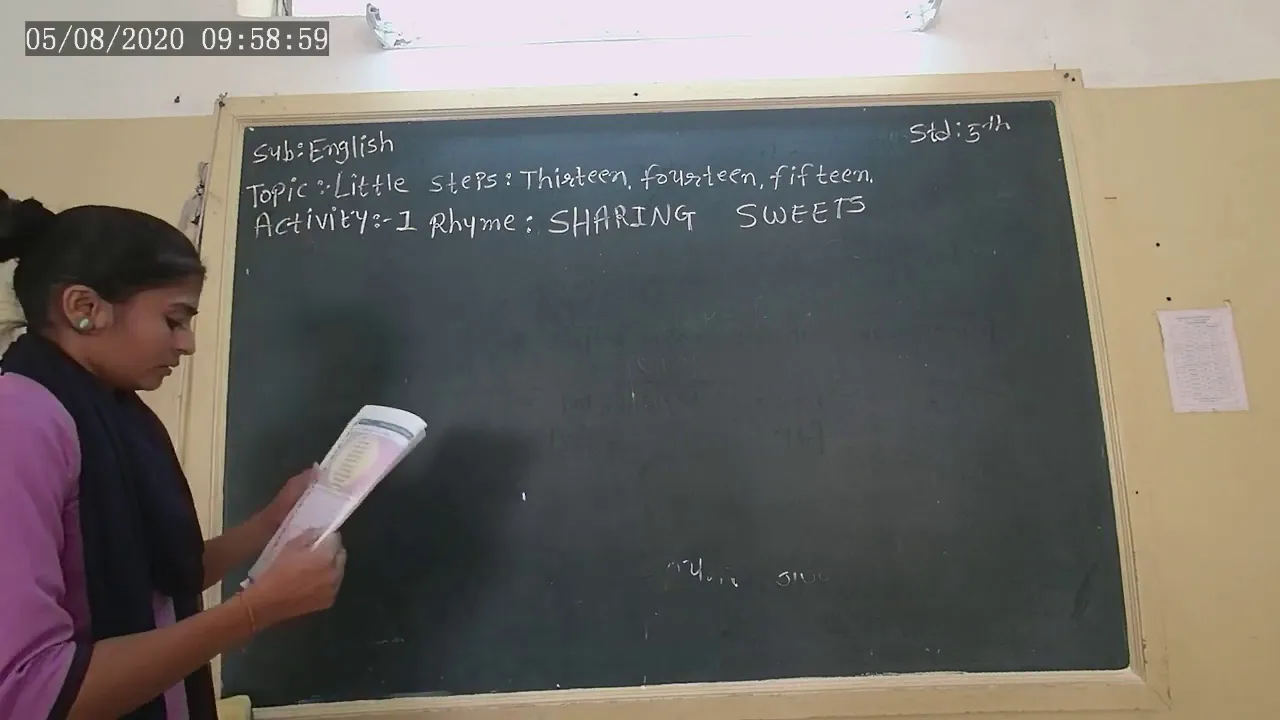 05/08/2020 09:58:59
Sub:English
Std:5th
Topic:-Little steps: Thirteen, fourteen, fifteen.
Activity:-1 Rhyme: SHARING SWEETS